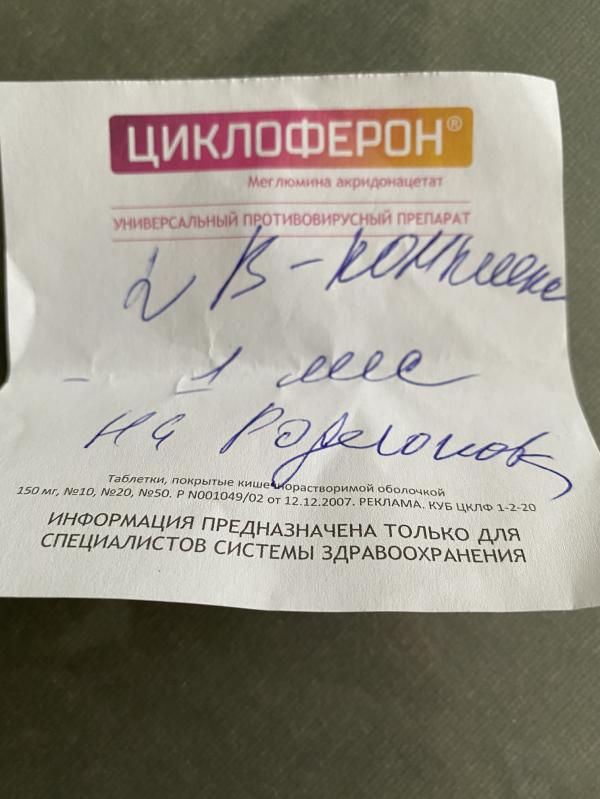 ЦИКЛОФЕРОН®
Меглюмина акридонацетат
УНИВЕРСАЛЬНЫЙ ПРОТИВОВИРУСНЫЙ ПРЕПАРАТ
В-комплекс
- 1 мес
на
Таблетки, покрытые кишечнорастворимой оболочкой
150 мг, №10, №20, №50. Р N001049/02 от 12.12.2007. РЕКЛАМА. КУБ ЦКЛФ 1-2-20
ИНФОРМАЦИЯ ПРЕДНАЗНАЧЕНА ТОЛЬКО ДЛЯ
СПЕЦИАЛИСТОВ СИСТЕМЫ ЗДРАВООХРАНЕНИЯ